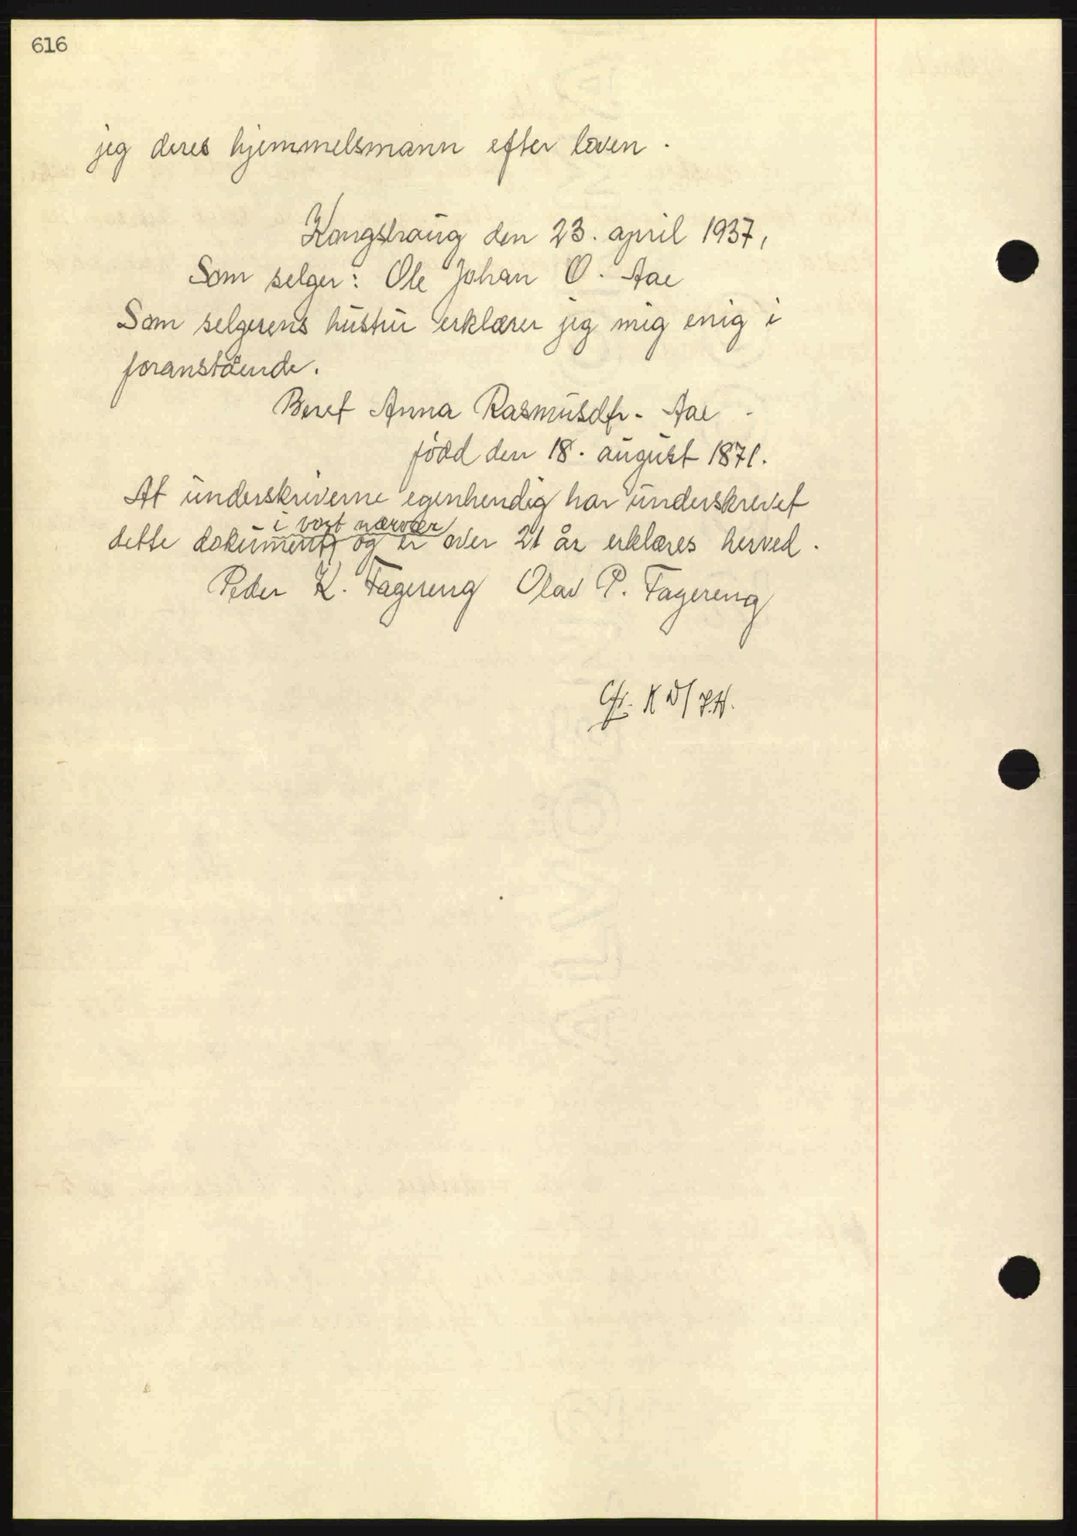 616
jeg deres hjemmelsmann efter loven.
Kongshaug den 23. april 1937,
Som selger: Ole Johan O. Aae
Som selgerens hustru erklærer jeg mig enig i
foranstående.
Beret Anna Rasmusdtr. Aae
född den 18. august 1871.
At underskriverne egenhendig har underskrevet
i vort nærvær
dette dokument og er over 21 år erklæres herved.
Peder K. Fagereng Olav P. Fagereng